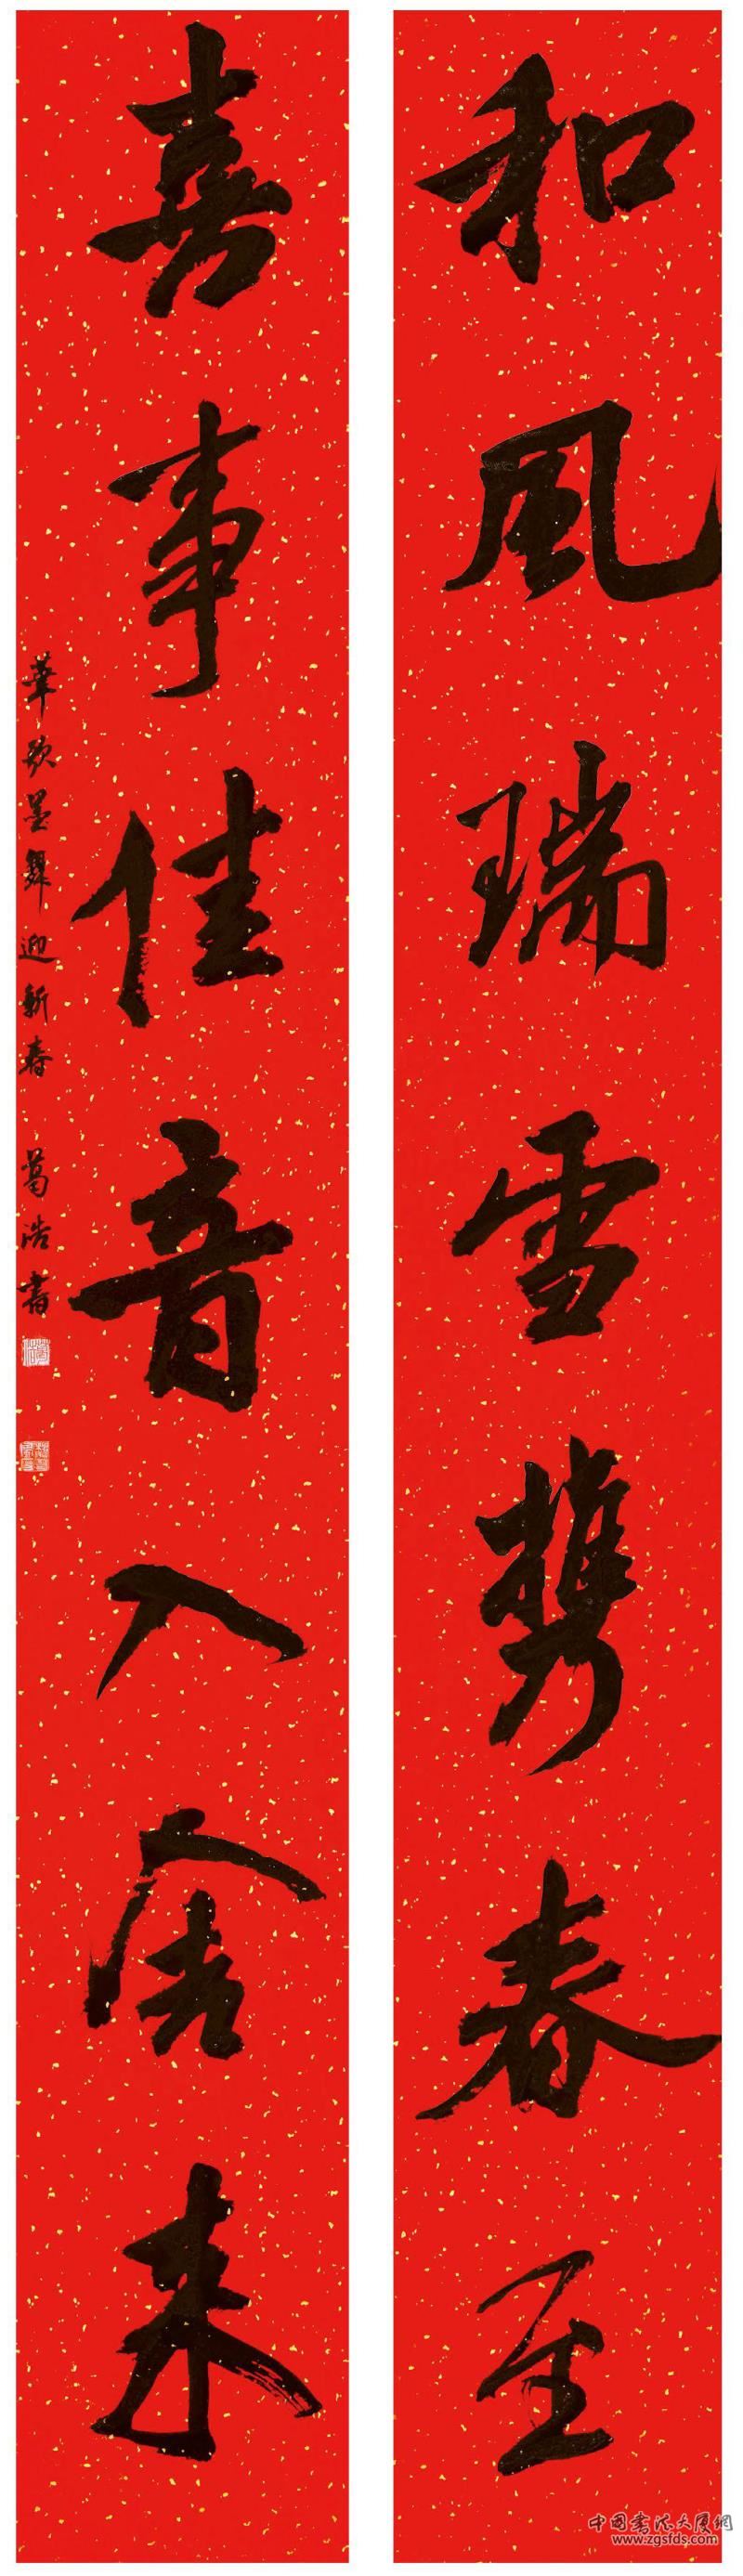 和風瑞雪携春至
喜事佳音入舍来
筆歌墨舞迎新春 葛浩書
中国书法大厦網
www.zgsfds.com